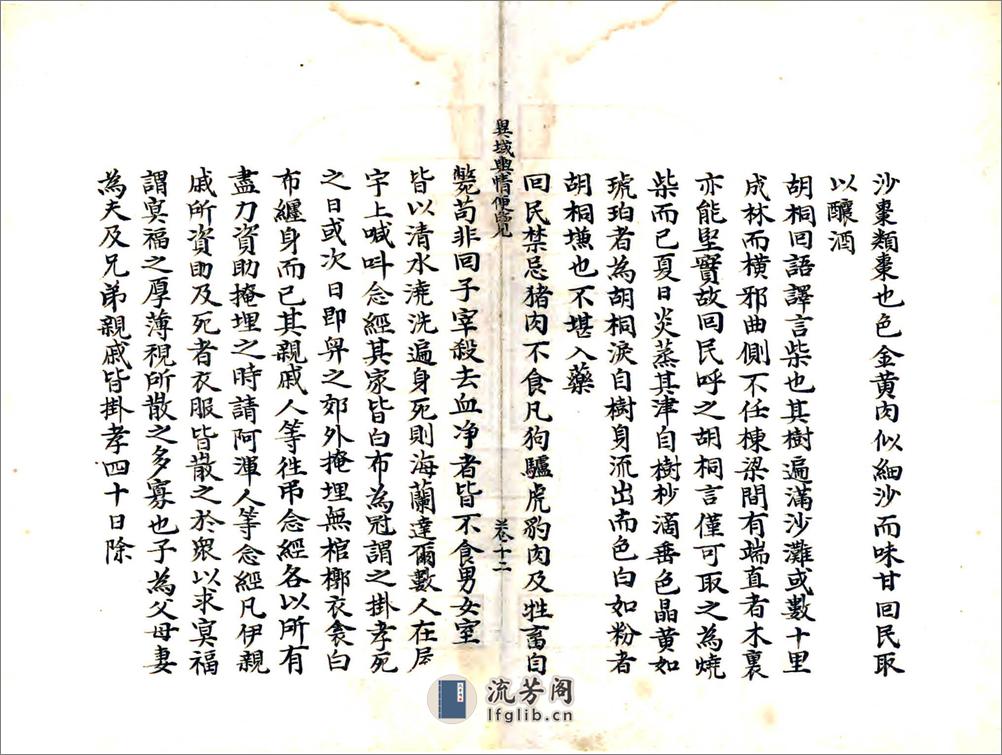 沙棗類棗也色金黃肉似細沙而味甘回民取
以釀酒
胡桐回語譯言柴也其樹遍滿沙灘或數十里
成林而橫邪曲側不任棟梁間有端直者木裏
亦能堅實故回民呼之胡桐言僅可取之為燒
柴而已夏日炎蒸其津自樹杪滴垂色晶黃如
琥珀者為胡桐淚自樹身流出而色白如粉者
胡桐塽也不堪入藥
回民禁忌猪肉不食凡狗驢虎豹肉及牲畜自
斃苟非回子宰殺去血净者皆不食男女室
皆以清水澆洗遍身死則海蘭達爾數人在屋
宇上喊呌念經其家皆白布為冠謂之掛孝死
之日或次日即舁之郊外掩埋無棺槨衣衾白
布纏身而已其親戚人等徃吊念經各以所有
盡力資助掩埋之時請阿渾人等念經凡伊親
戚所資助及死者衣服皆散之於衆以求冥福
謂冥福之厚薄視所散之多寡也子為父母妻
為夫及兄弟親戚皆掛孝四十日除
異域輿情便覽
卷十二
流芳阁
lfglib.cn